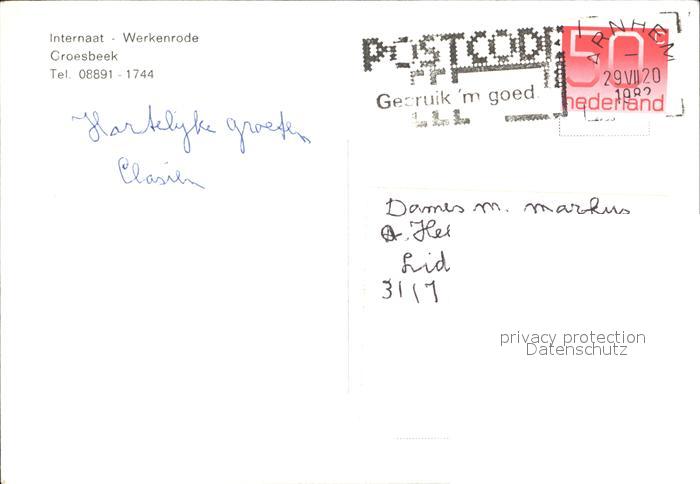 Internaat - Werkenrode
Groesbeek
Tel. 08891 - 1744
Hartelijke groeten
Clasien
POSTCODE
Gebruik 'm goed.
ARNHEM
29 VII 20
1982
50
nederland
Dames M. Markus
A. Hei
Lid
3117
privacy protection
Datenschutz